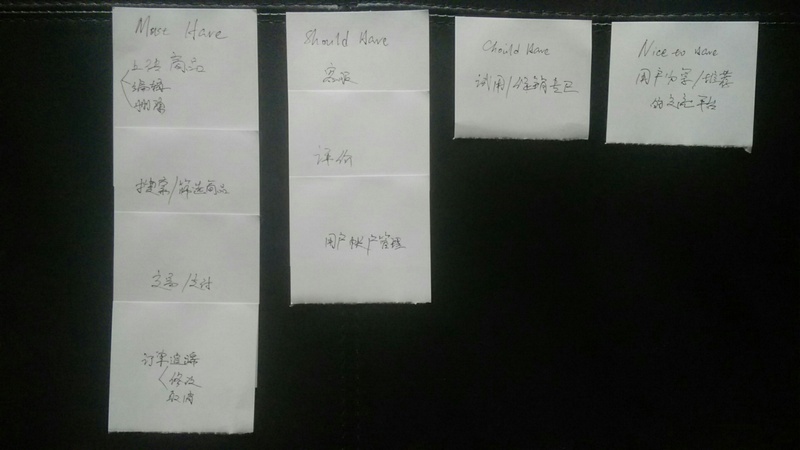 Must Have
上传商品
编辑
删除
搜索/筛选商品
交易/支付
订单追踪
修改
取消
Should Have
客服
评价
用户账户管理
Chould Have
试用/促销
Nice to Have
用户分享/推荐
的交流平台